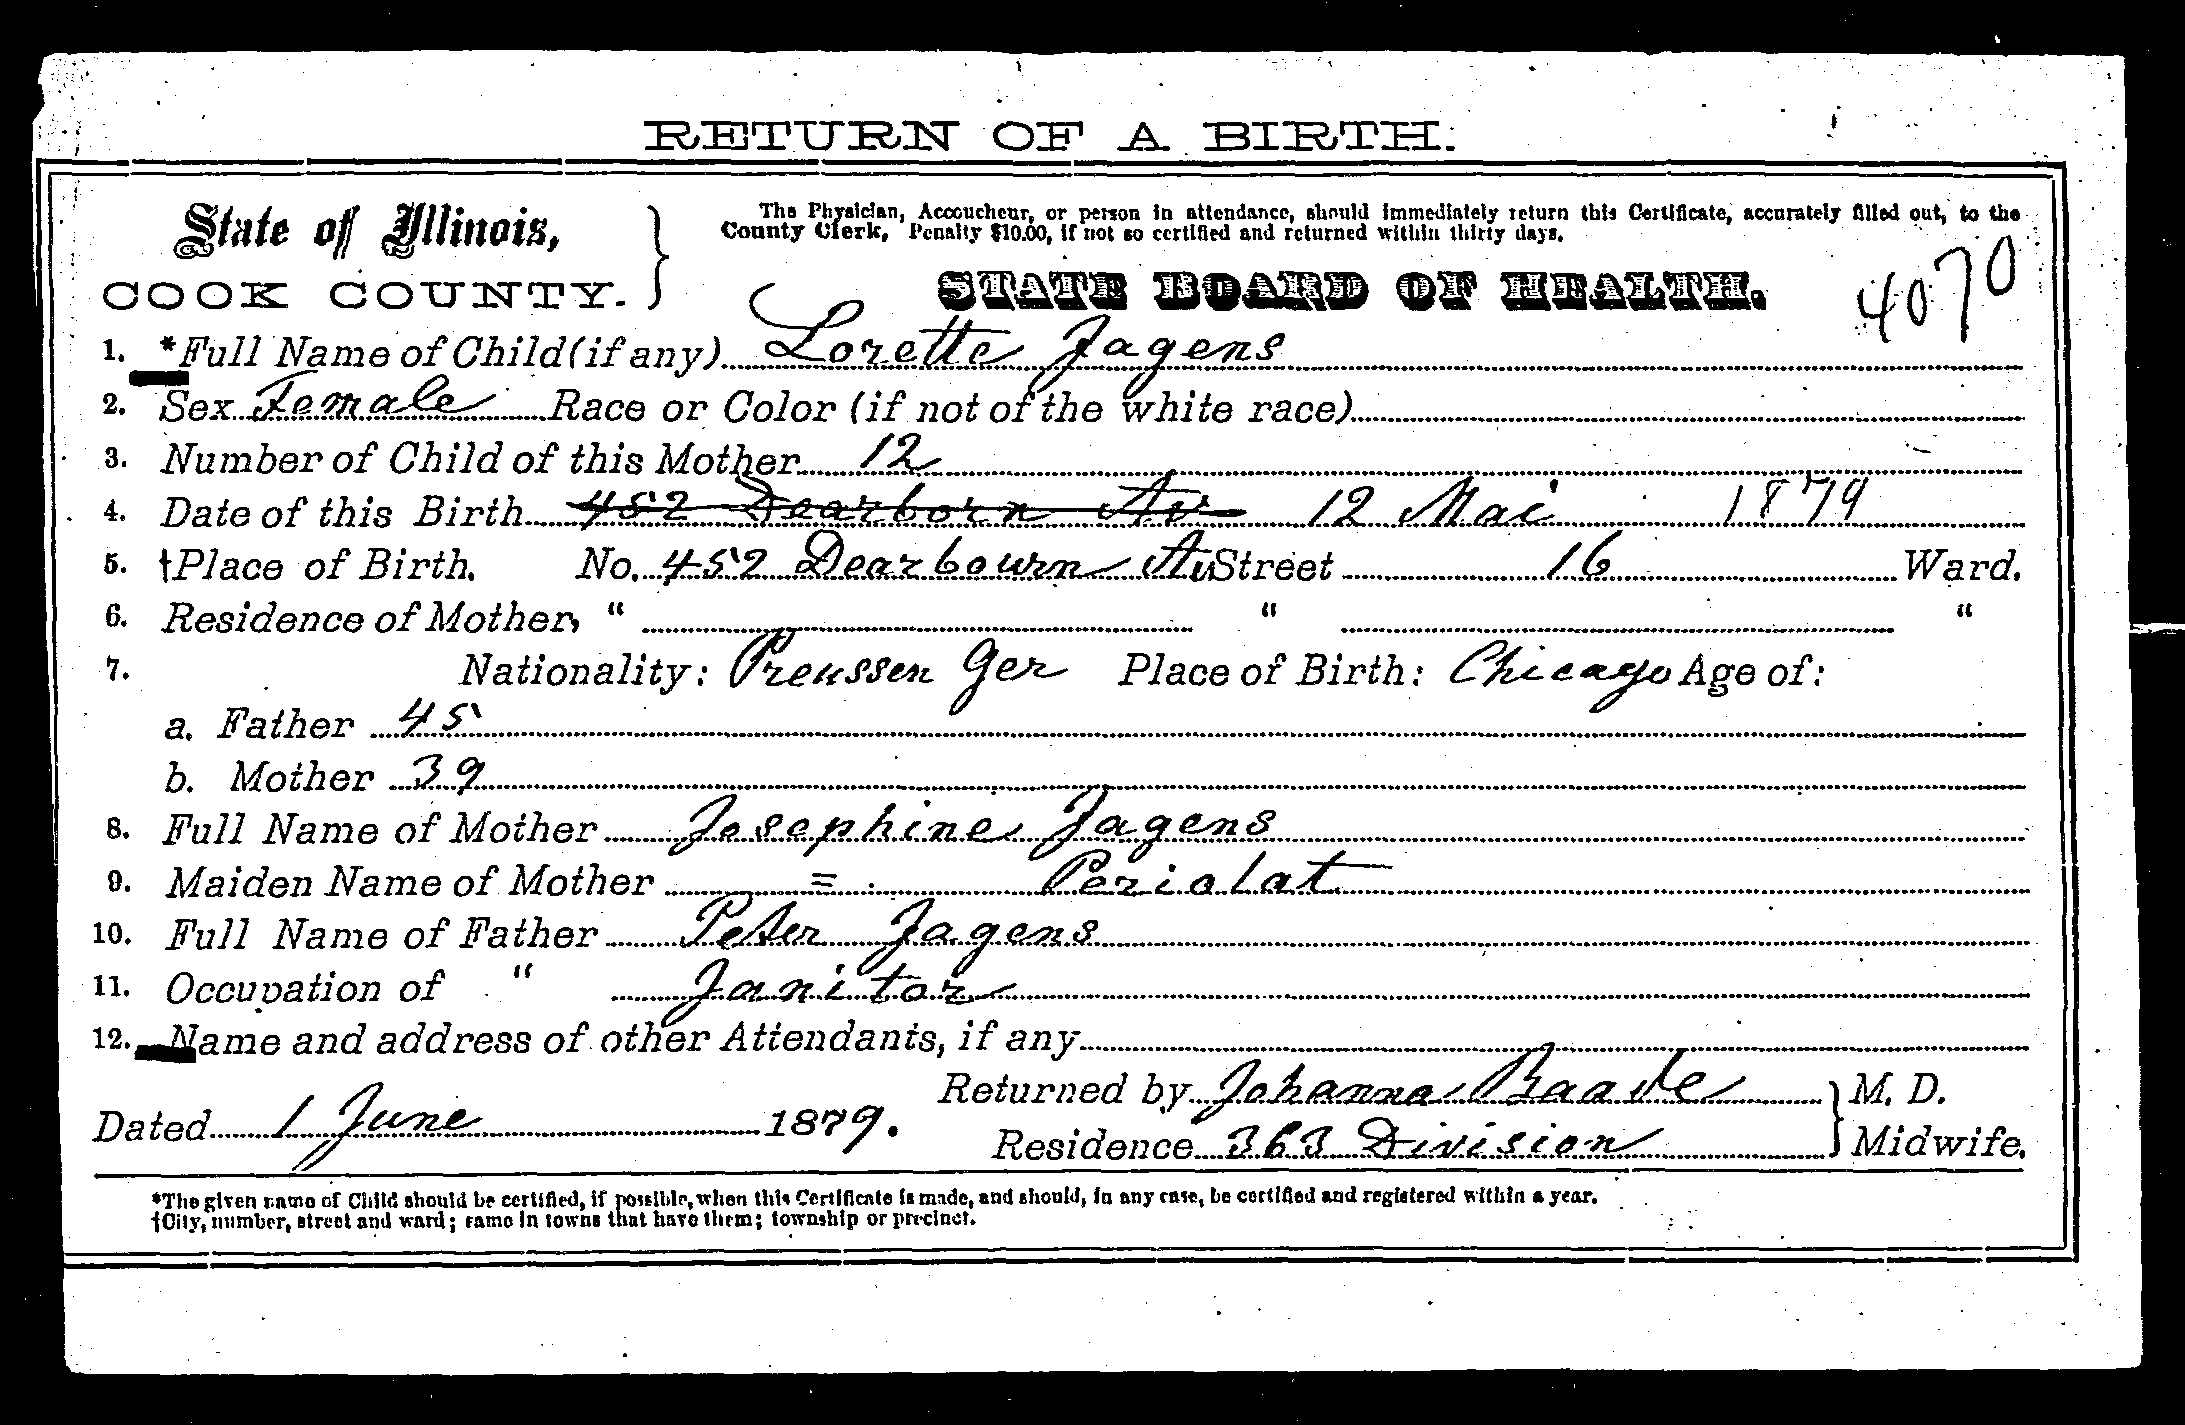 RETURN OF A BIRTH.
State of Illinois,
COOK COUNTY.
The Physician, Accoucheur, or person in attendance, should immediately return this Certificate, accurately filled out, to the
County Clerk, Penalty $10.00, if not so certified and returned within thirty days.
STATE BOARD OF HEALTH.
4070
1. *Full Name of Child (if any) Lorette Jagens
2. Sex Female Race or Color (if not of the white race)
3. Number of Child of this Mother 12
4. Date of this Birth 452 Dearborn Av 12 Mai 1879
5. †Place of Birth. No. 452 Dearbourn Av Street 16 Ward.
6. Residence of Mother, " " "
7. Nationality: Preussen Ger Place of Birth: Chicago Age of:
a. Father 45
b. Mother 39
8. Full Name of Mother Josephine Jagens
9. Maiden Name of Mother = Periolat
10. Full Name of Father Peter Jagens
11. Occupation of " Janitor
12. Name and address of other Attendants, if any
Returned by Johanna Baade M. D.
Dated 1 June 1879.
Residence 363 Division Midwife.
*The given name of Child should be certified, if possible, when this Certificate is made, and should, in any case, be certified and registered within a year.
†City, number, street and ward; same in towns that have them; township or precinct.